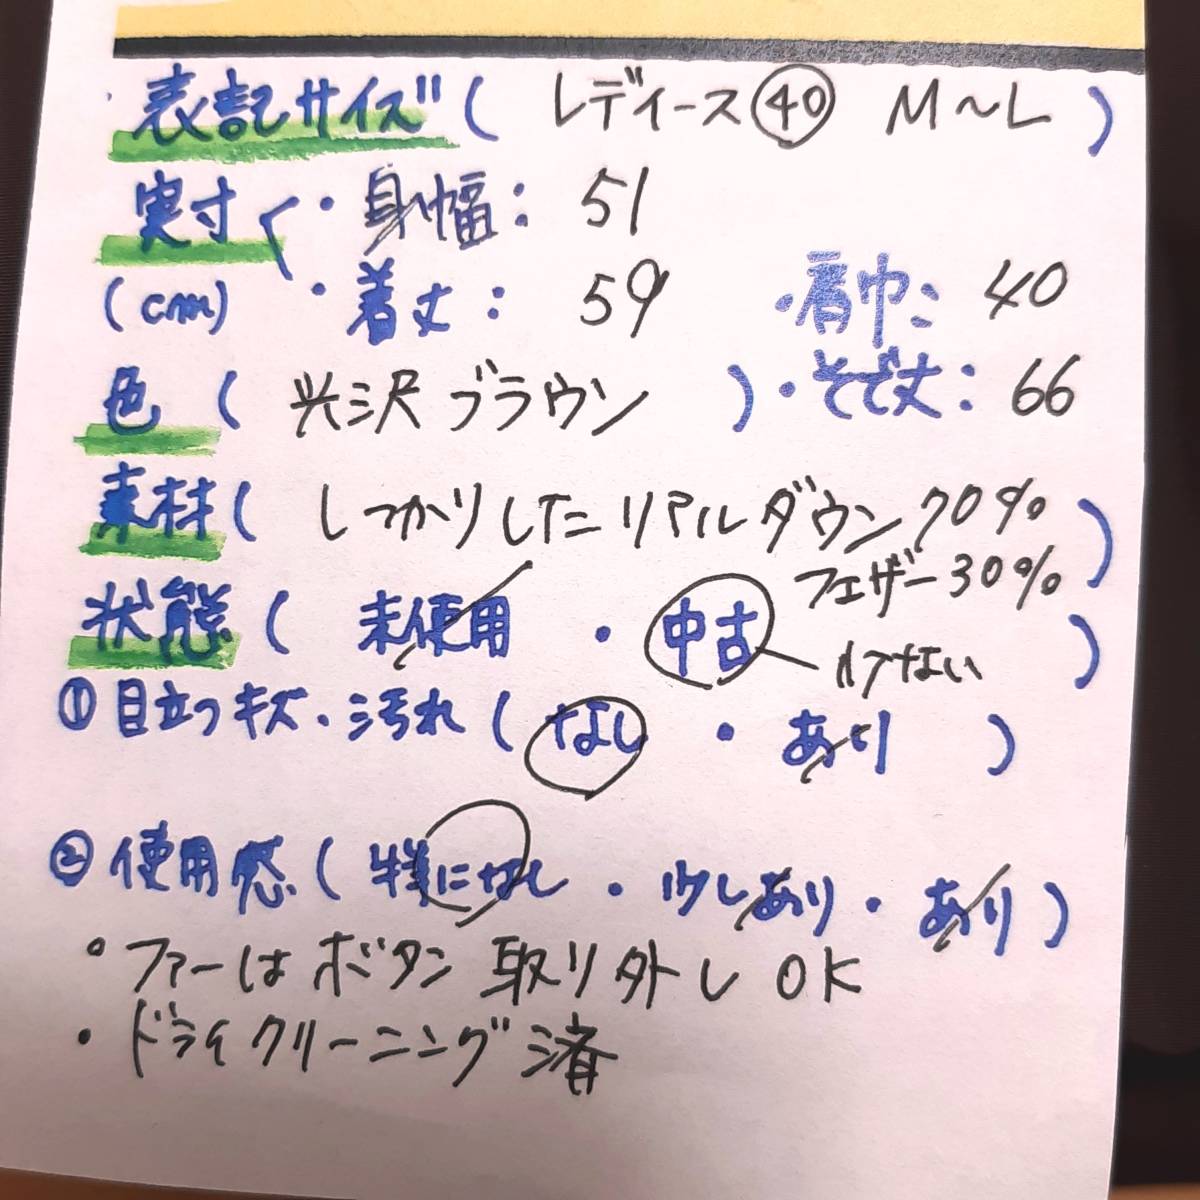 表記サイズ( レディース㊵ M〜L )
実寸 ・身幅: 51
(cm) ・着丈: 59 ・肩巾: 40
色 ( 光沢ブラウン ) ・そで丈: 66
素材( しっかりしたリアルダウン70% )
フェザー30%
状態( 未使用 ・ 中古 )
ない
①目立つキズ・汚れ( なし ・ あり )
②使用感( 特になし ・ 少しあり ・ あり )
・ファーはボタン取り外しOK
・ドライクリーニング済